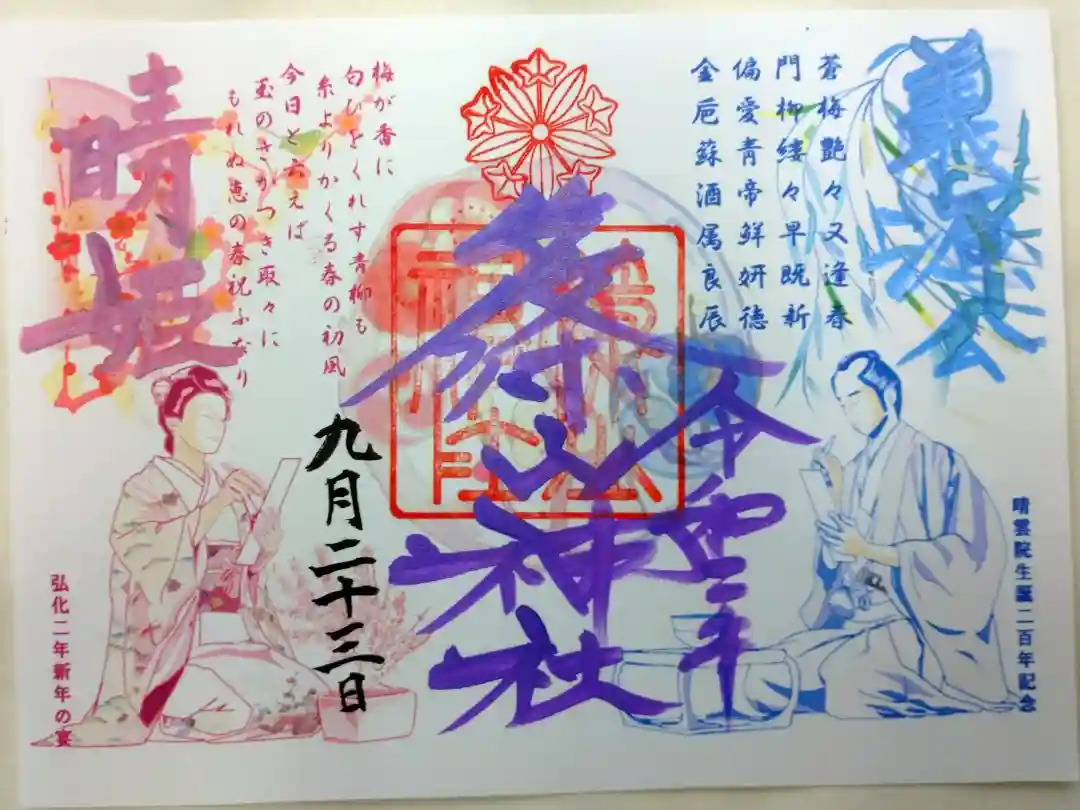 蒼梅艶々又逢春
門柳縷々早既新
偏愛青帝鮮妍徳
金巵蘇酒属良辰
晴雲院生誕二百年記念
令和三年
篠山神社
九月二十三日
梅が香に
匂ひをくれす青柳も
糸よりかくる春の初風
今日と云えば
玉のさかつき取々に
もれぬ恵の春祝ふなり
晴姫
弘化二年新年の宴